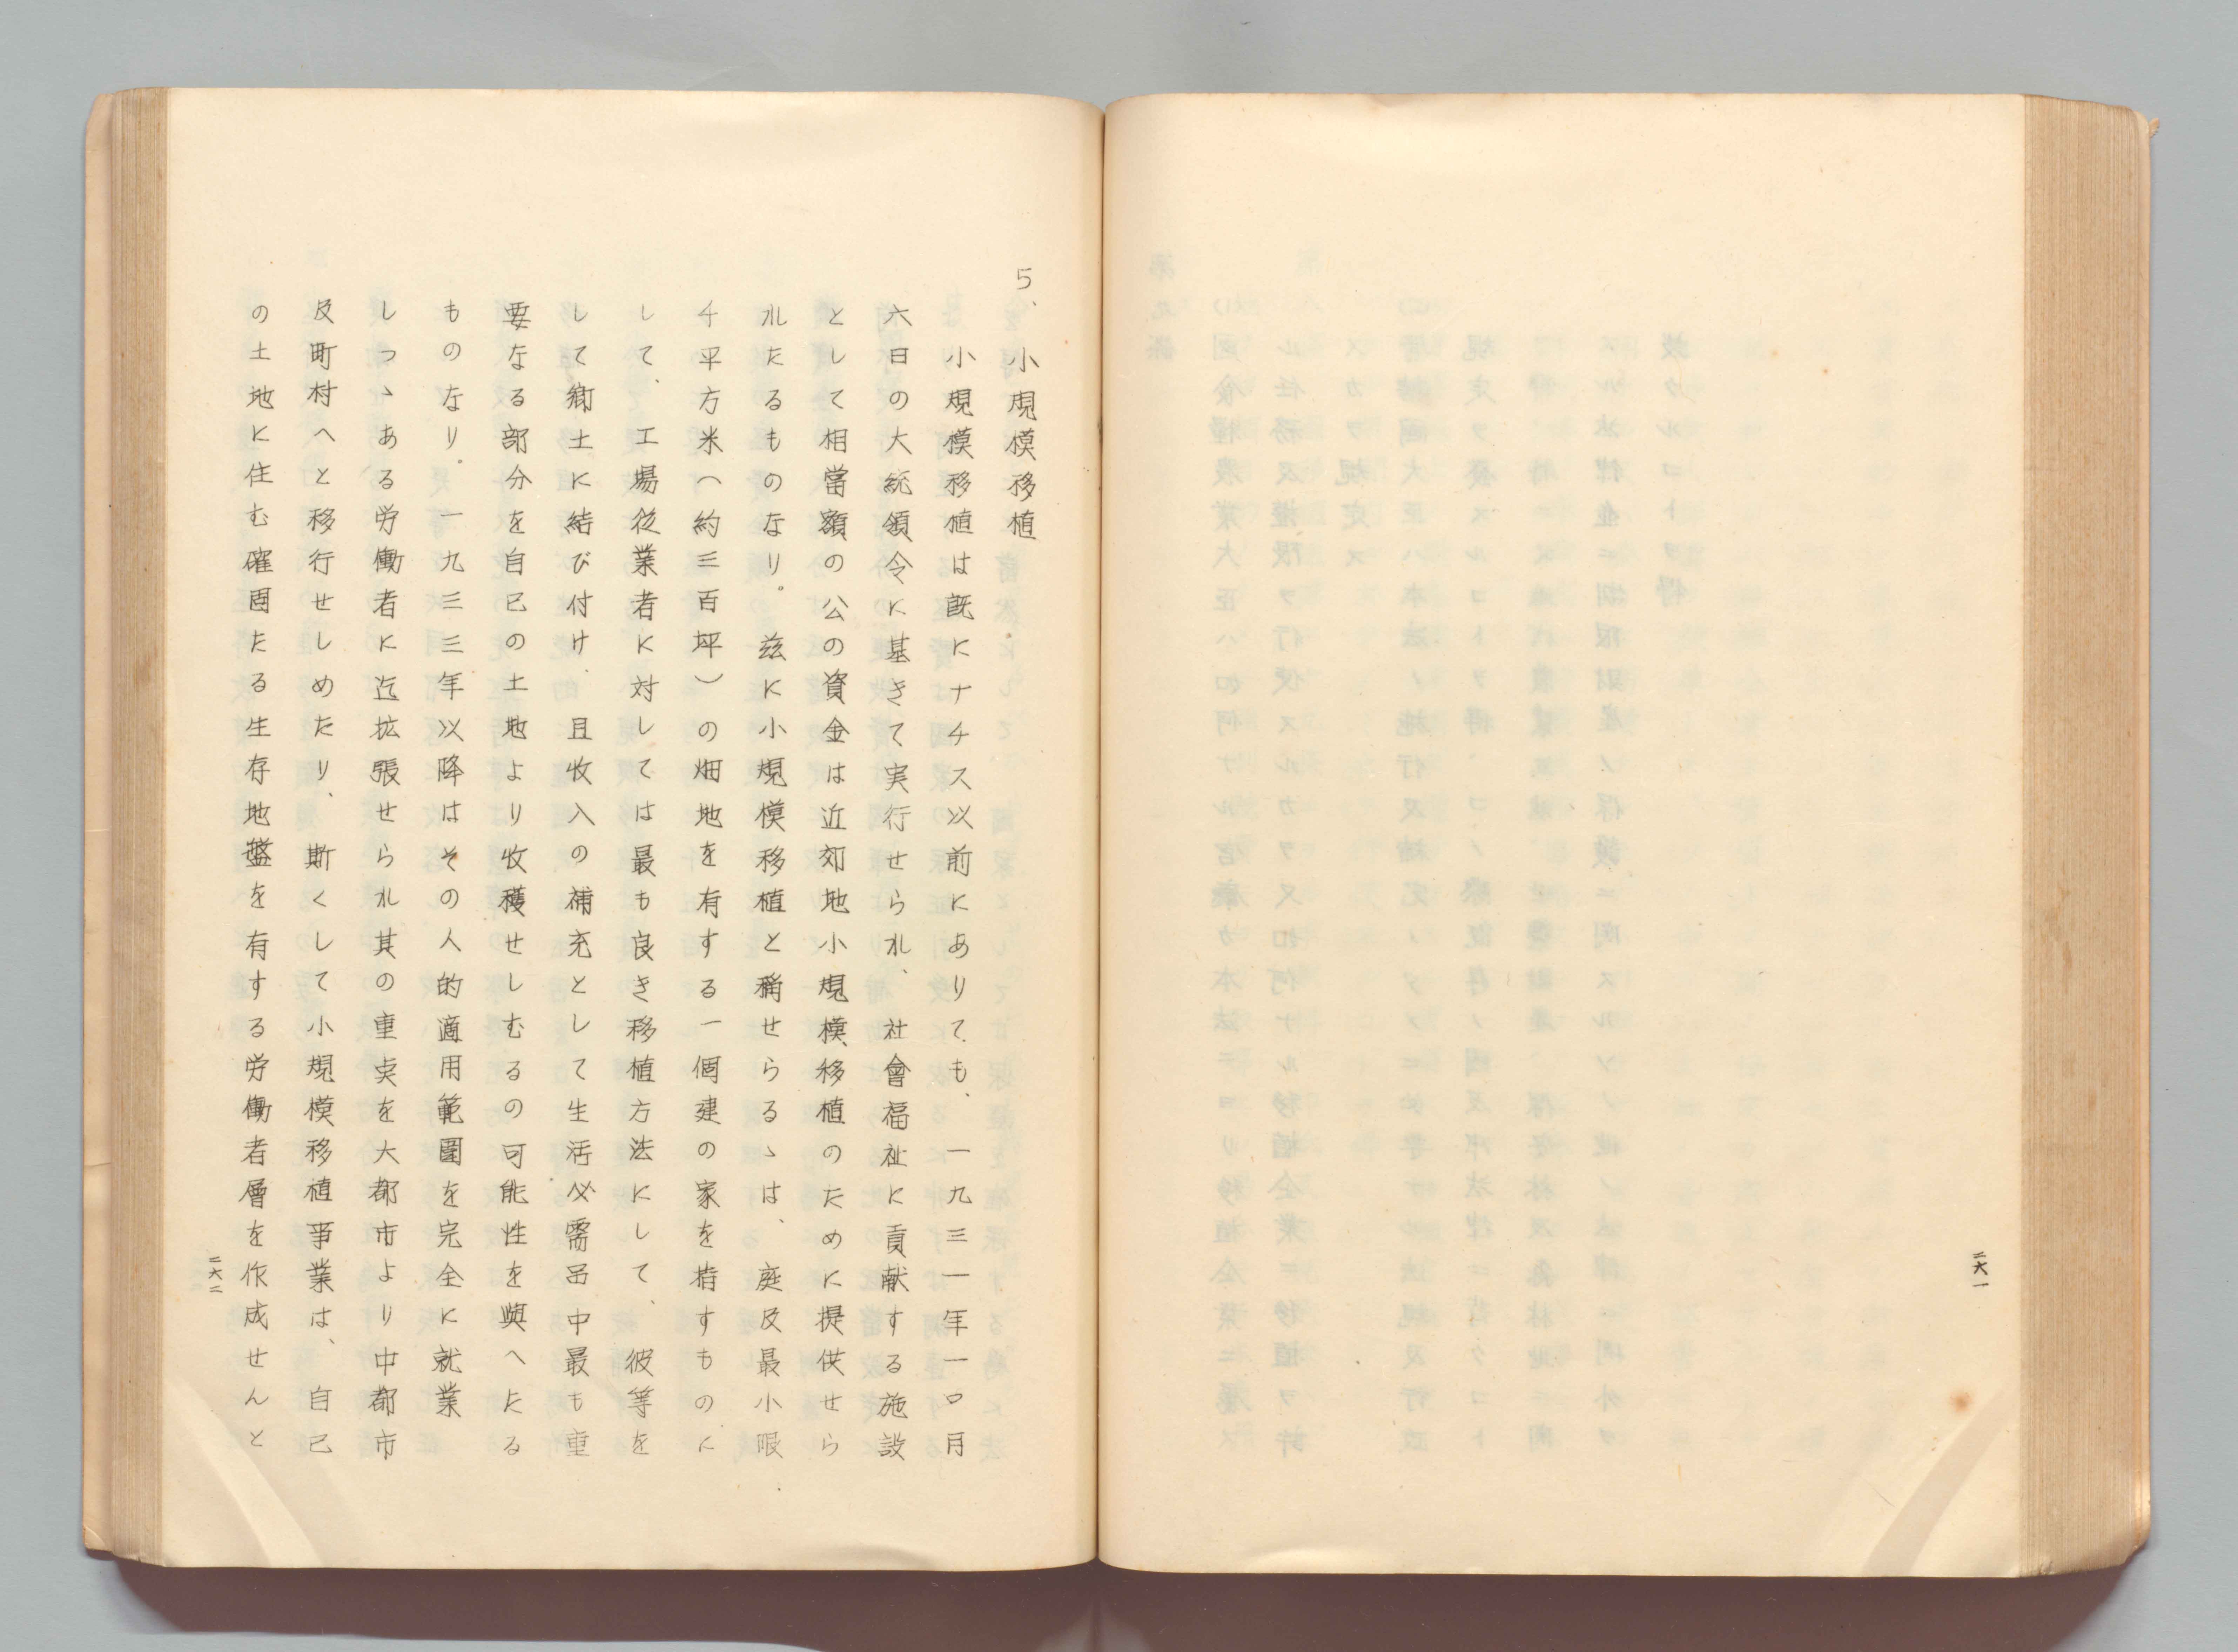 二六一
5、小規模移植
小規模移植は既にナチス以前にありても、一九三一年一〇月
六日の大統領令に基きて実行せられ、社會福祉に貢献する施設
として相當額の公の資金は近郊地小規模移植のために提供せら
れたるものなり。玆に小規模移植と稱せらるゝは、庭及最小限
千平方米（約三百坪）の畑地を有する一個建の家を指すものに
して、工場從業者に対しては最も良き移植方法にして、彼等を
して鄉土に結び付け、且收入の補充として生活必需品中最も重
要なる部分を自己の土地より收穫せしむるの可能性を與へたる
ものなり。一九三三年以降はその人的適用範圍を完全に就業
しつゝある労働者に迄拡張せられ其の重実を大都市より中都市
及町村へと移行せしめたり、斯くして小規模移植事業は、自己
の土地に住む確固たる生存地盤を有する労働者層を作成せんと
二六二